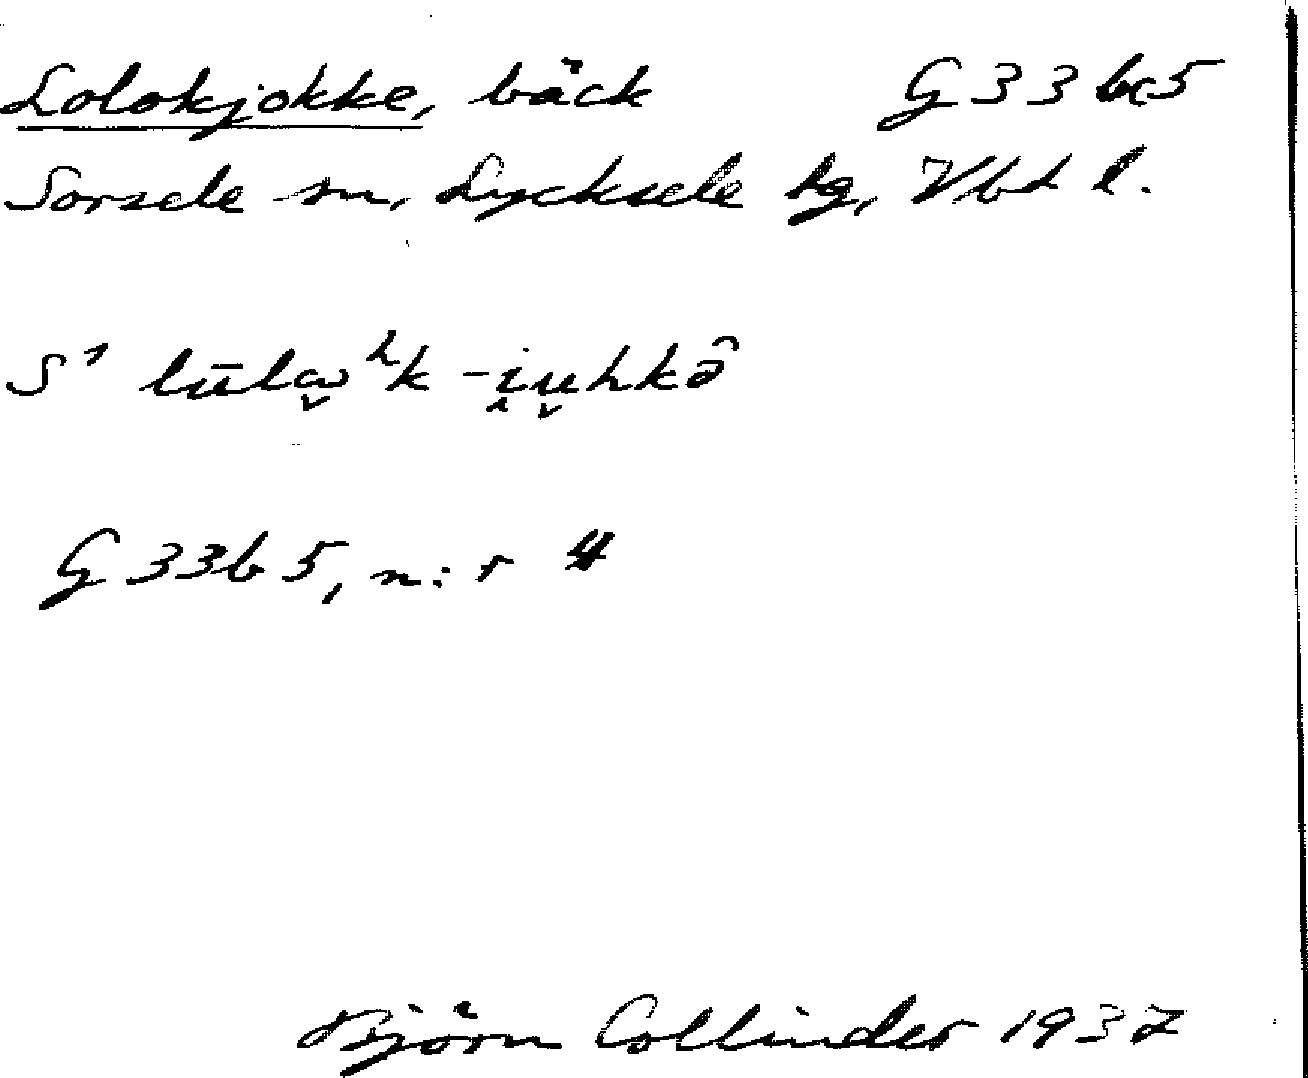 Lolokjokke, bäck G 33 b 5
Sorsele sn, Lycksele lg, Vbt l.
S¹ lūlɑ̬ʰk -i̭u̬hkə̂
G 33b 5, n:r 4
Björn Collinder 1937